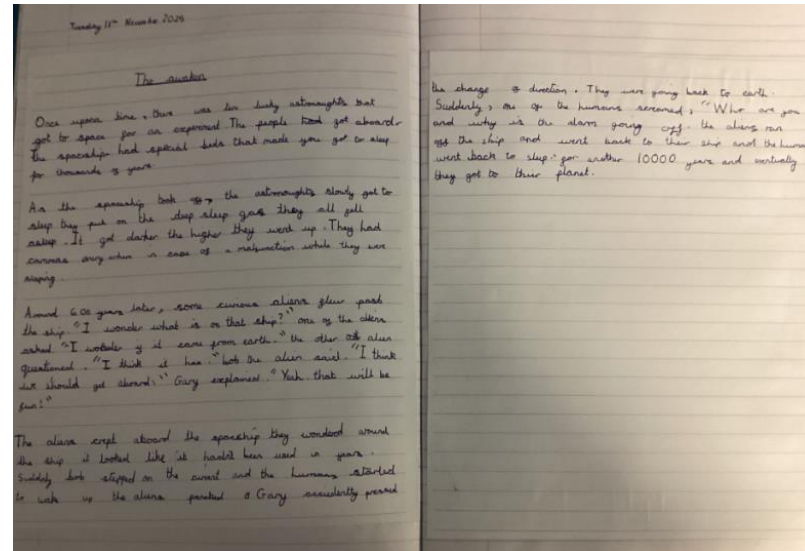 Tuesday 18th November 2025
The awaken
Once upon time, there was ten lucky astronoughts that
got to space for an experiment. The people had got aboard
The spaceship had special beds that made you got to sleep
for thousands of years.
As the spaceship took off, the astronoughts slowly got to
sleep they put on the deep sleep gas they all fell
asleep. It got darker the higher they went up. They had
cameras in case of a malfunction while they were
sleeping.
Around 600 years later, some curious aliens flew past
the ship. "I wonder what is on that ship?" one of the aliens
asked "I wonder if it came from earth." the other alien
questioned. "I think it has." bob the alien said. "I think
we should get aboard." Gary explained. "Yeah that will be
fun!"
The aliens crept aboard the spaceship they wonderd around
the ship it looked like it hadn't been used in years.
Suddely bob stepped on the and the humans started
to wake up the aliens panicked & Gary accidently pressed
the change of direction. They were going back to earth.
Suddenly, one of the humans screamed, "Who are you
and why is the alarm going off. the aliens ran
off the ship and went back to their ship and the human
went back to sleep for another 10000 years and eventually
they got to their planet.